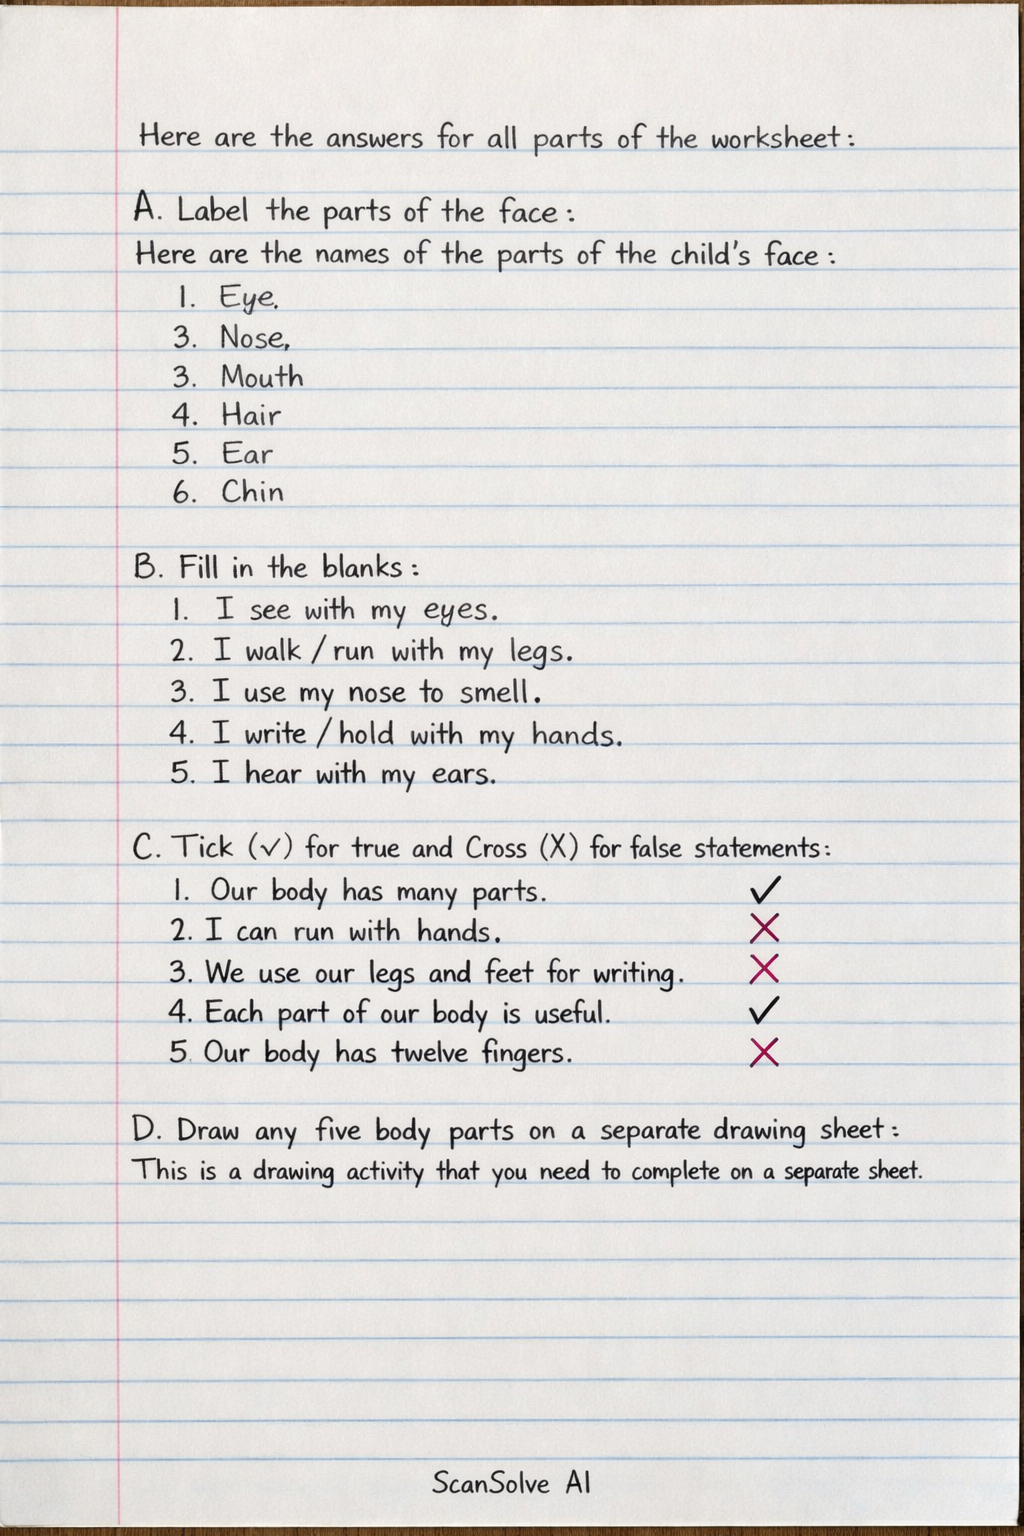 Here are the answers for all parts of the worksheet:
A. Label the parts of the face:
Here are the names of the parts of the child's face:
1. Eye.
3. Nose,
3. Mouth
4. Hair
5. Ear
6. Chin
B. Fill in the blanks:
1. I see with my eyes.
2. I walk / run with my legs.
3. I use my nose to smell.
4. I write / hold with my hands.
5. I hear with my ears.
C. Tick (✓) for true and Cross (X) for false statements:
1. Our body has many parts. ✓
2. I can run with hands. ✗
3. We use our legs and feet for writing. ✗
4. Each part of our body is useful. ✓
5. Our body has twelve fingers. ✗
D. Draw any five body parts on a separate drawing sheet:
This is a drawing activity that you need to complete on a separate sheet.
ScanSolve AI